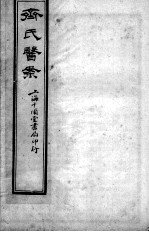 齊氏醫案
上海千頃堂書局印行